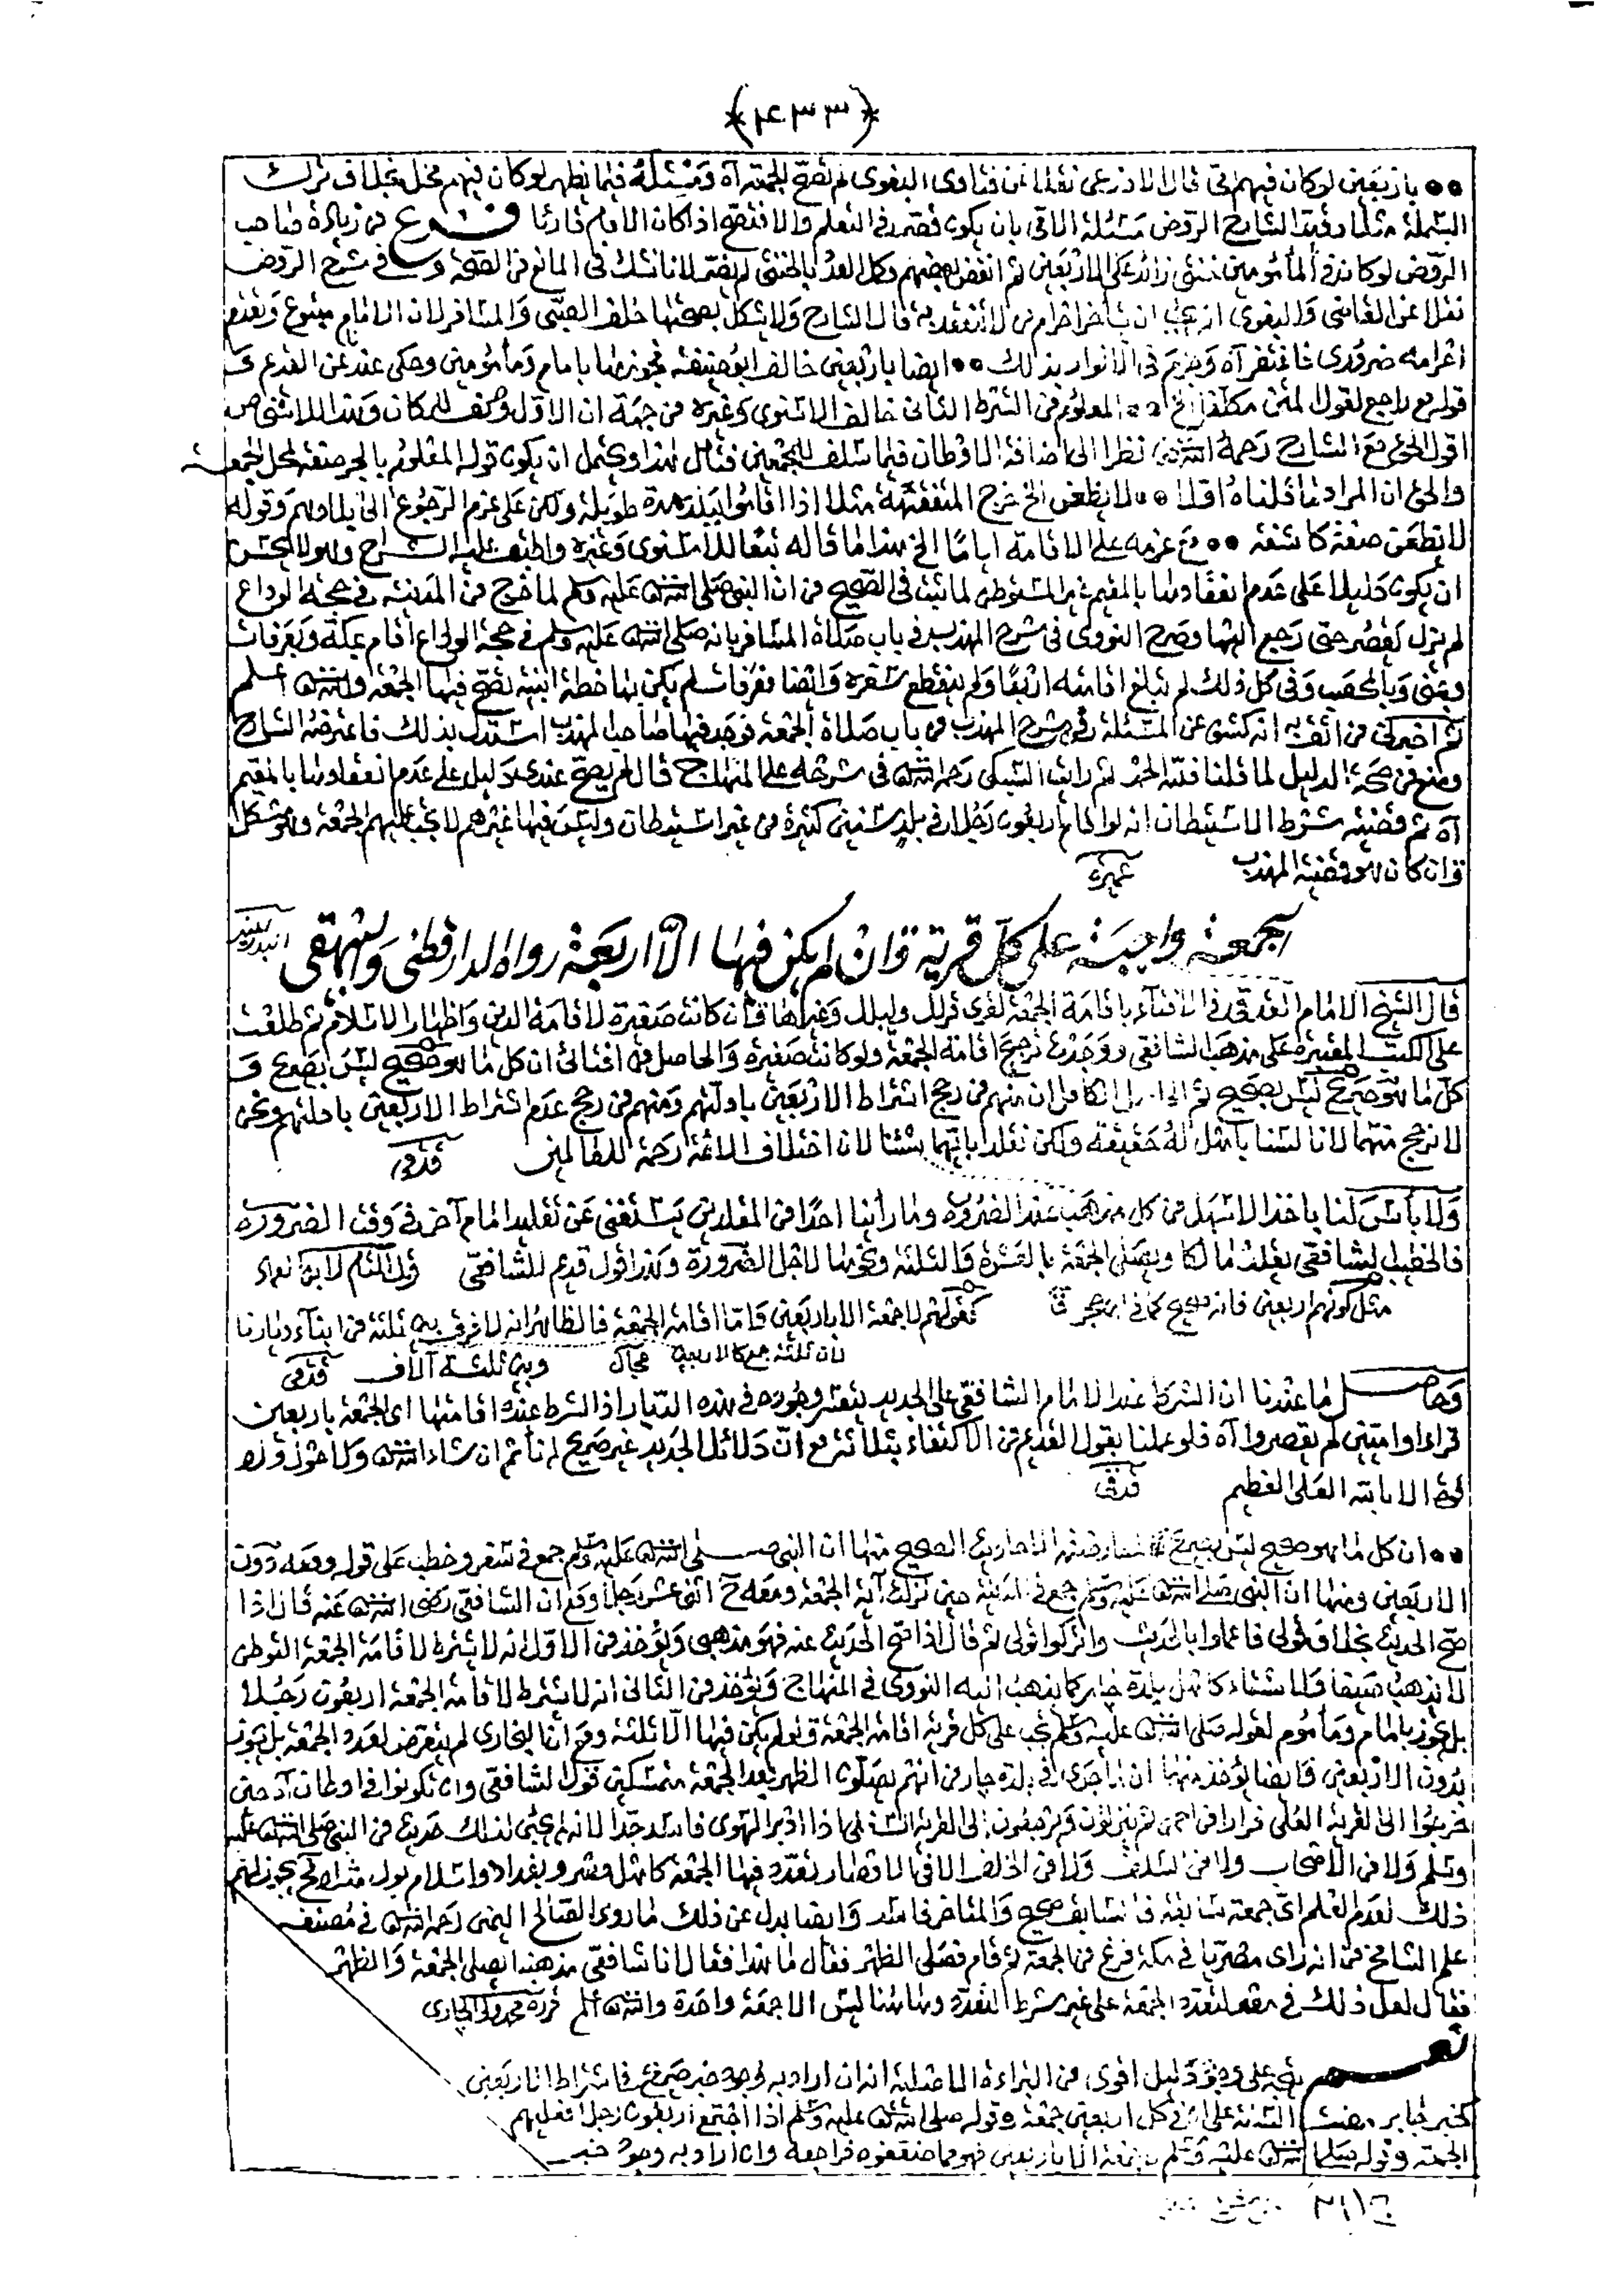 (٤٣٣)
٥٥ باربعين لو كان فيهم امى قال الاذرعى نقلا عن فتاوى البغوى لم تصح الجمعة آه ومثله فيما يظهر لو كان فيهم مخل بخلاف ترك
البسملة مثلا وقيد الشارح الروض مسئلة الامى بان يكون قصر فى التعلم والا فتصح اذا كان الامام قارئا فرع من زيادة صاحب
الروض لو كان فى المأمومين خنثى زائد على الاربعين ثم انفض بعضهم وكمل العدد بالخنثى لم يضر لانا نشك فى المانع من الصحة وفى شرح الروض
نقلا عن القاضى والبغوى انه يجب ان يتأخر احرام من لا تنعقد به قال الشارح ولا يشكل بصحتها خلف الصبى والمسافر لان الامام متبوع وتقدم
احرامه ضرورى فاغتفر آه وجزم فى الانوار بذلك ٥٥ ايضا باربعين خالف ابو حنيفة فجوزها بامام ومأمومين وحكى عندنا عن القديم
قوله مع راجع لقول المتن مكلفا الخ ٥٥ المعلوم من الشرط الثانى خالف الاسنوى وغيره من جهة ان الاول وصف للمكان وهذا للاشخاص
اقول الحق مع الشارح رحمه الله نظرا الى اضافة الاوطان فيما سلف للمجمعين فتأمل هذا ويحتمل ان يكون قوله المعلوم بالجر صفة لمحل الجمعة
والحق ان المراد ما قلناه اولا ٥٥ لا يظعن الخ خرج المتفقهة مثلا اذا اقاموا ببلد مدة طويلة ولكن على عزم الرجوع الى بلادهم وقوله
لا يظعن صفة كاشفة ٥٥ مع عزمه على الاقامة اياما الخ هذا ما قاله تبعا للاسنوى وغيره واطبقت عليه الشراح وهو لا يحسن
ان يكون دليلا على عدم انعقادها بالمقيم غير المستوطن لما ثبت فى الصحيح من ان النبى صلى الله عليه وسلم لما خرج من المدينة فى حجة الوداع
لم يزل يقصر حتى رجع اليها وصرح النووى فى شرح المهذب فى باب صلاة المسافر بانه صلى الله عليه وسلم فى حجة الوداع اقام بمكة وبعرفات
وبمنى وبالمحصب وفى كل ذلك لم تبلغ اقامته اربعا ولم ينقطع سفره وايضا فعرفات لم يكن بها خطة ابنية تصح فيها الجمعة والله اعلم
ثم اخبرنى من اثق به انه كشف عن المسئلة فى شرح المهذب من باب صلاة الجمعة فوجد فيها صاحب المهذب استدل بذلك فاعترضه الشارح
ومنع من صحة الدليل لما قلنا فلله الحمد ثم رأيت السبكى رحمه الله فى شرحه على المنهاج قال لم يصح عندى دليل على عدم انعقادها بالمقيم
آه ثم قضية شرط الاستيطان انه لو اقام اربعون رجلا فى بلد سنين كثيرة من غير استيطان وليس فيها غيرهم لا تجب عليهم الجمعة وهو مشكل
وان كان هو قضية المهذب عميرة
الجمعة واجبة على كل قرية وان لم يكن فيها الا اربعة رواه الدارقطنى والبيهقى
قال الشيخ الامام القدقى فى الافتاء باقامة الجمعة لقرى وغيرها وان كانت صغيرة لاقامة الدين واظهار الاسلام ثم طلعت
على الكتب المعتبرة على مذهب الشافعى ووجدت ترجيح اقامة الجمعة ولو كانت صغيرة والحاصل فى افتائى ان كل ما هو صحيح ليس بصريح و
كل ما هو صريح ليس بصحيح ثم ان منهم من رجح اشتراط الاربعين بادلتهم ومنهم من رجح عدم اشتراط الاربعين بادلتهم ونحن
لا نرجح منهما لانا لسنا باهل له حقيقة ولكن نقلد بايهما شئنا لان اختلاف الائمة رحمة للعالمين قدقى
ولا بأس لنا باخذ الاسهل من كل مذهب عند الضرورة وما رأينا احدا من المقلدين يستغنى عن تقليد امام آخر فى وقت الضرورة
فالخطيب الشافعى يقلد مالكا ويصلى الجمعة بالعشرة والثلثة ونحوها لاجل الضرورة وهذا قول قديم للشافعى
مثل كونهم اربعين فانه صحيح كما فى ابن حجر كقولهم لا جمعة الا باربعين واما اقامة الجمعة فالظاهر انه لا فرق بين ثلثة من ابناء ديارنا
لان ثلثة جمع كالاربعين وبين ثلثة آلاف قدقى
وحاصل ما عندنا ان الشرط عند الامام الشافعى على الجديد يتعسر وجوده فى هذه الديار اذ الشرط عنده اقامتها اى الجمعة باربعين
قراء او اميين لم يقصروا آه فلو عملنا بقول القديم من الاكتفاء بثلاثة مع ان دلائل الجديد غير صريح لم نأثم ان شاء الله ولا حول ولا
قوة الا بالله العلى العظيم قدقى
٥٥ ان كل ما هو صحيح ليس بصريح الاحاديث الصحيح منها ان النبى صلى الله عليه وسلم جمع فى سفر وخطب على قوله ومعه دون
الاربعين ومنها ان النبى صلى الله عليه وسلم جمع فى المدينة حين نزلت آية الجمعة ومعه اثنى عشر رجلا وقد ان الشافعى رضى الله عنه قال اذا
صح الحديث بخلاف قولى فاعملوا بالحديث واتركوا قولى ثم قال اذا صح الحديث عنه فهو مذهبى ويؤخذ من الاول انه لا يشترط لاقامة الجمعة التوطن
لا يذهب صيفا ولا شتاء كاهل بلدة جار كما يذهب اليه النووى فى المنهاج ويؤخذ من الثانى انه لا يشترط لاقامة الجمعة اربعون رجلا
بل يجوز بامام ومأموم لقوله صلى الله عليه وسلم تجب على كل قرية اقامة الجمعة ولو لم يكن فيها الا ثلثة البخارى لم يتعرض لعدد الجمعة بل يجوز
بدون الاربعين وايضا يؤخذ منهما ان ما جرى فى بلدة جار من انهم يصلون الظهر بعد الجمعة متمسكين قول الشافعى وان تكونوا فى اوطان آه حتى
خرجوا الى القرية العلى فرارا ثم ينزلون ويرجعون الى القرية اذا الهوى فاسد جدا لانه لم يجئ لذلك حديث من النبى صلى الله عليه
وسلم ولا من الاصحاب ولا من السلف ولا من الخلف الا فى الاقطار تعدد فيها الجمعة كاهل مصر وبغداد واسلامبول يجوز لهم
ذلك لعدم العلم اى جمعة سابقة فالسابق صحيح والمتأخر فاسد وايضا يدل عن ذلك ما روى الصالح اليمنى رحمه الله فى مصنفه
علم الشامخ من انه رأى مصريا فى مكة فرغ من الجمعة ثم قام فصلى الظهر فقال ما هذا فقال انا شافعى مذهبنا يصلى الجمعة والظهر
فقال لعل ذلك فى مصر لتعدد الجمعة على غير شرط التعدد وهاهنا ليس الا جمعة واحدة والله اعلم
نعم دليل اقوى من البراءة الاصلية انه ان اراد به وجود خبر صريح فاشتراط الاربعين
كخبر جابر مضت السنة على ان فى كل اربعين جمعة وقوله صلى الله عليه وسلم اذا اجتمع اربعون رجلا فعليهم
الجمعة وقوله صلى الله عليه وسلم لا جمعة الا باربعين فهو مما ضعفوه فراجعه وان اراد به وجود خبر